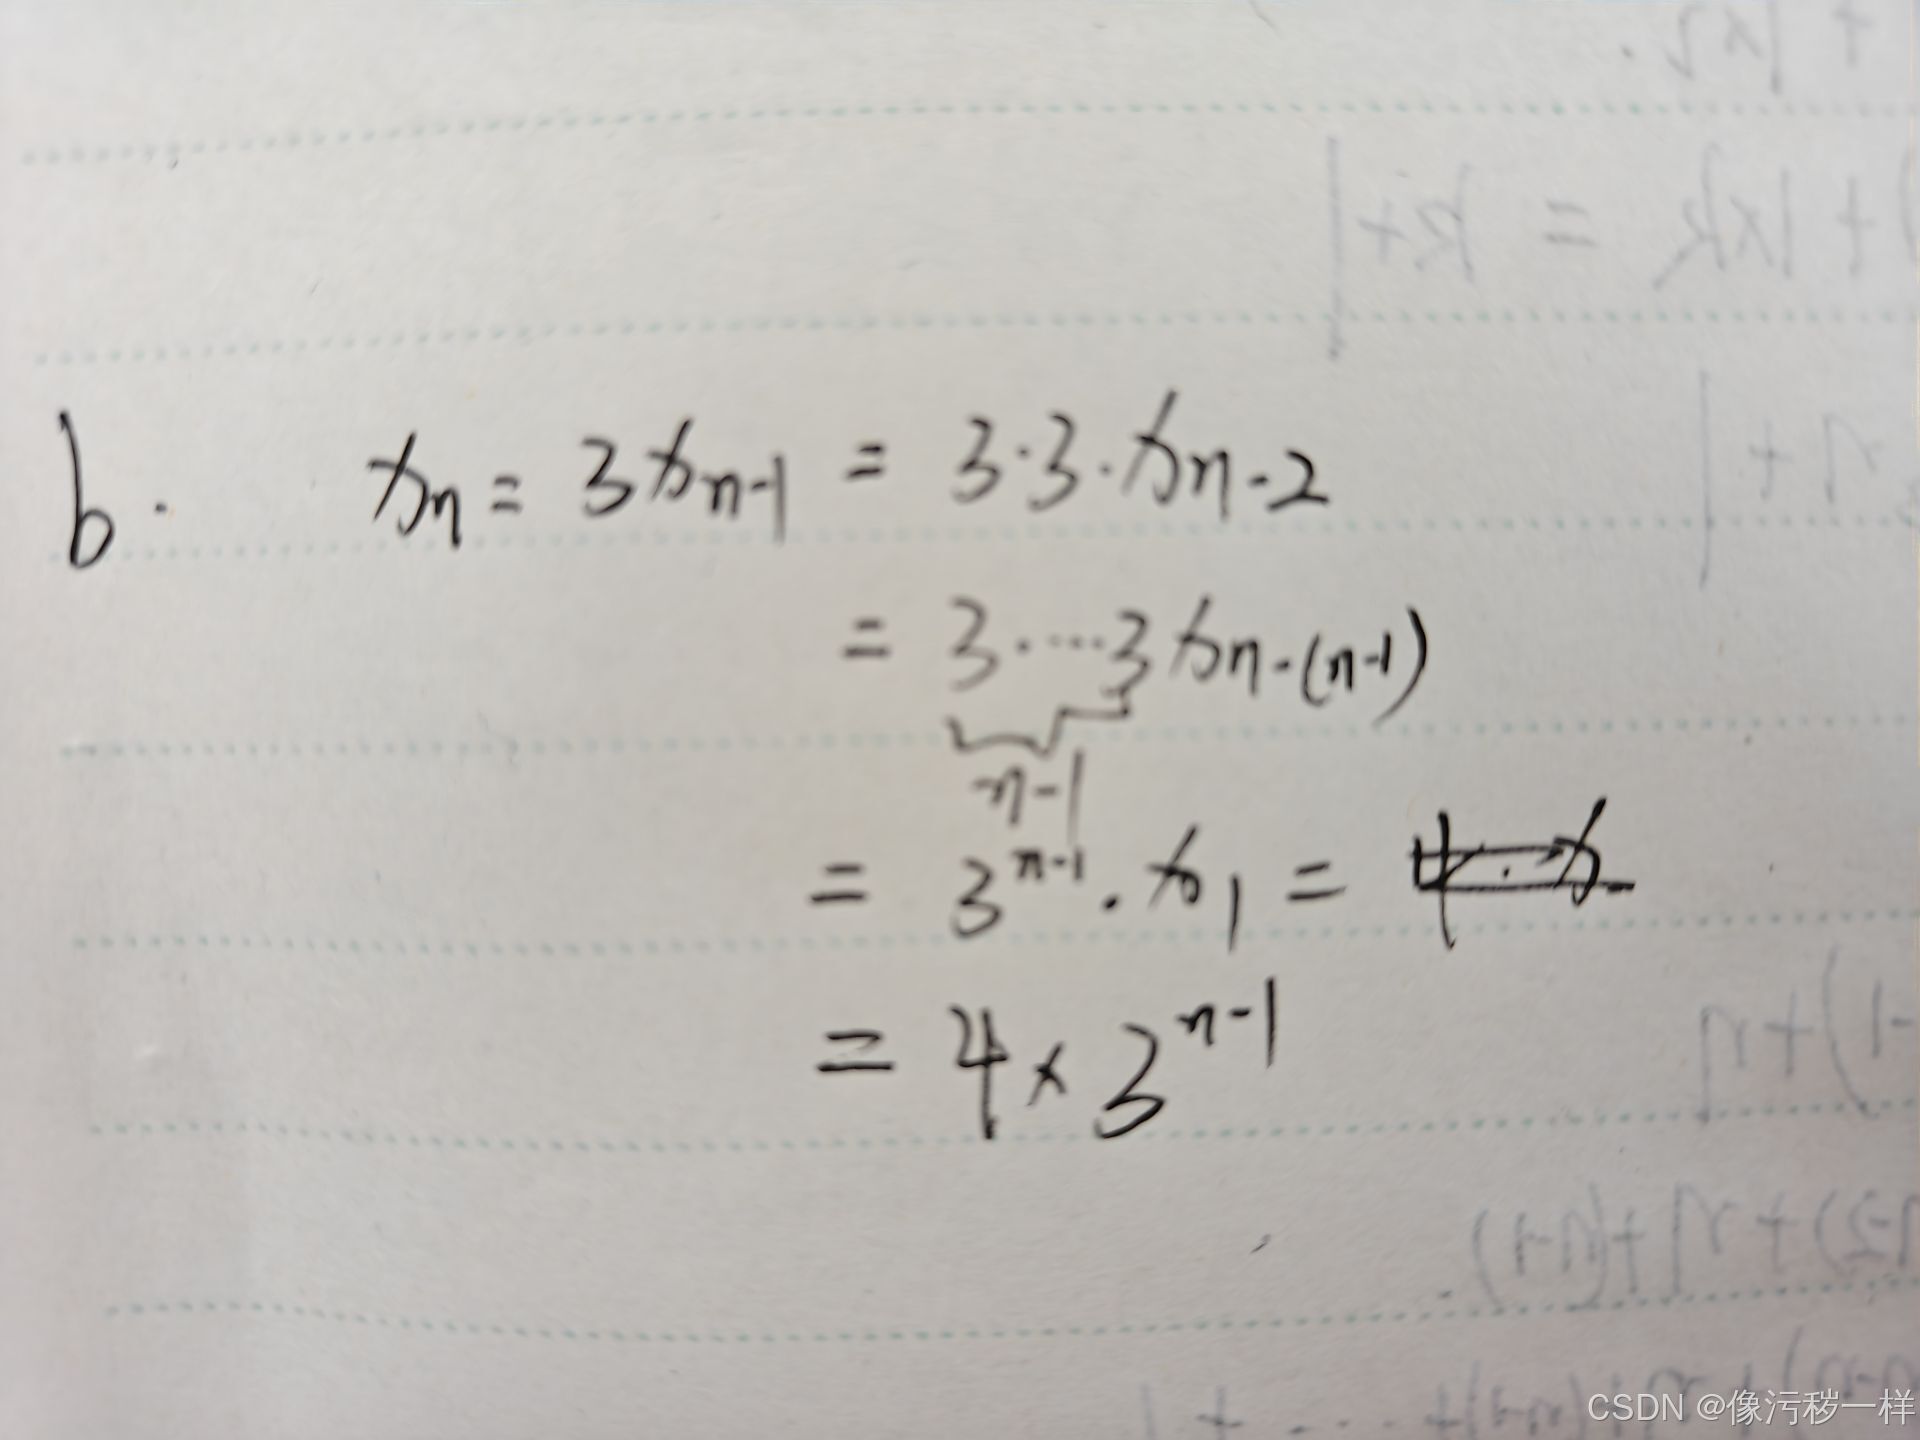 b. xₙ = 3xₙ₋₁ = 3·3·xₙ₋₂
= 3·…3xₙ₋₍ₙ₋₁₎
n-1
= 3ⁿ⁻¹·x₁ =
= 4×3ⁿ⁻¹
CSDN @像污秽一样